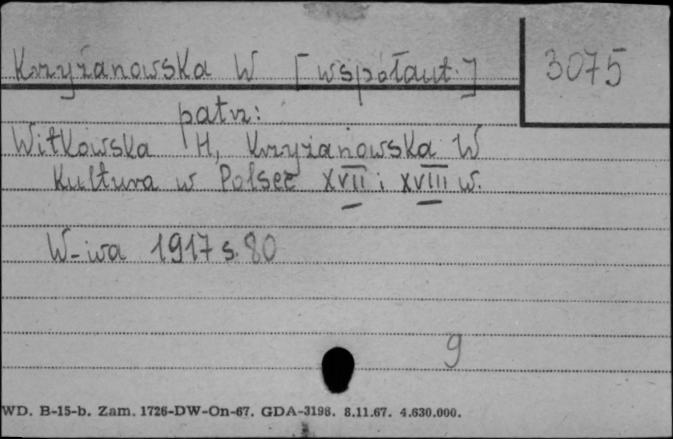 Krzyżanowska W [współaut.]
3075
patrz:
Witkowska H, Krzyżanowska W
Kultura w Polsce XVII i XVIII w.
W-wa 1917 s. 80
9
WD. B-15-b. Zam. 1726-DW-On-67. GDA-3198. 8.11.67. 4.630.000.